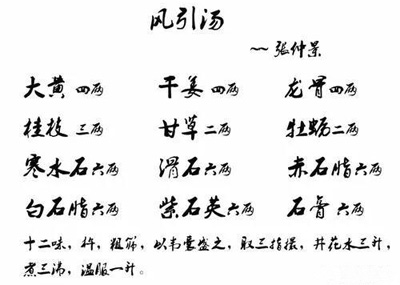 风引汤
~~张仲景
大黄 四两 干姜 四两 龙骨 四两
桂枝 三两 甘草 二两 牡蛎 二两
寒水石 六两 滑石 六两 赤石脂 六两
白石脂 六两 紫石英 六两 石膏 六两
十二味，杵，粗筛，以韦囊盛之，取三指撮，井花水三升，
煮三沸，温服一升。